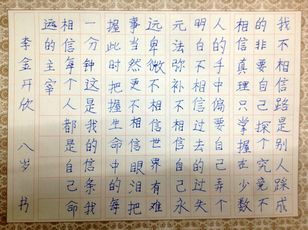 我不相信路是别人踩成
的非要自己探个究竟不
相信真理只掌握在少数
人的手中偏要自己去弄个
明白不相信过去的过失
无法弥补不相信自己永
远卑微不相信世界有难
事当然更不相信眼泪把
握此时把握生命中的每
一分钟这是我的信条我
相信每个人都是自己命
运的主宰
李金丹欣 八岁 书